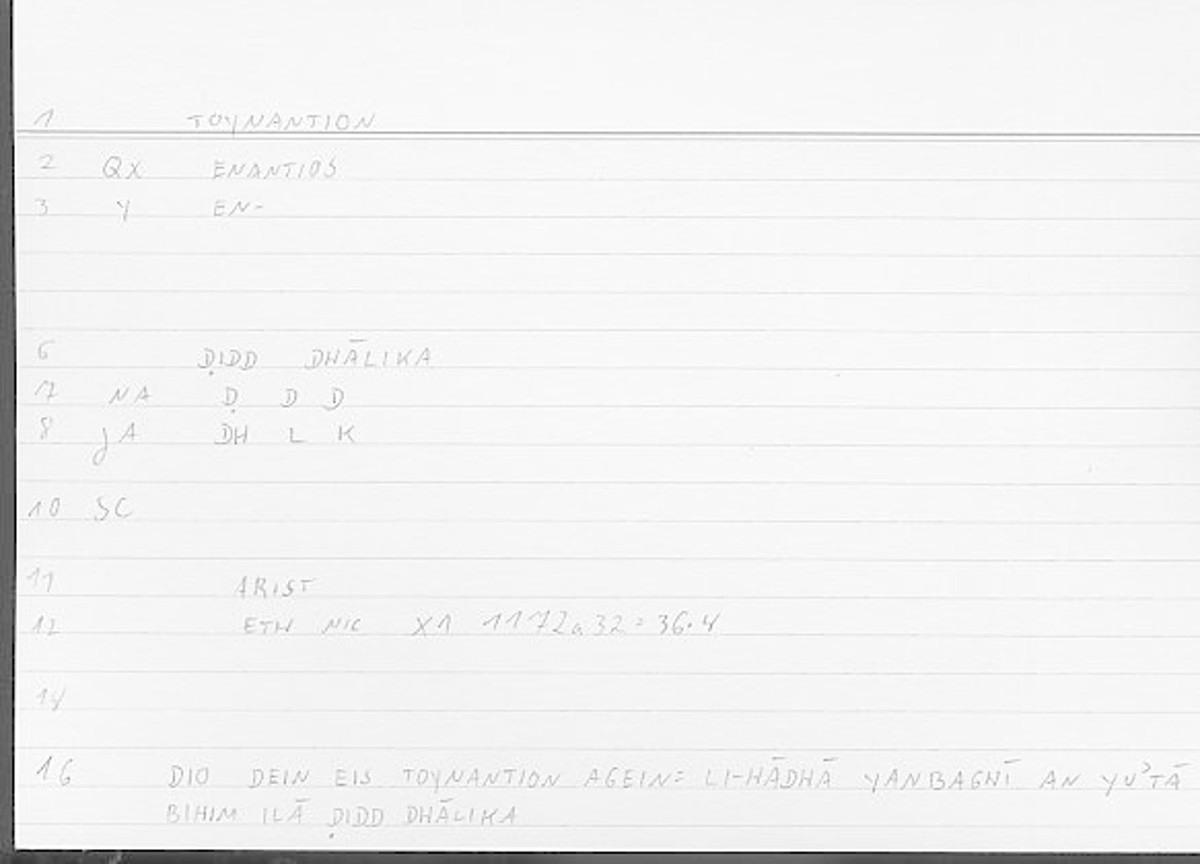 1 TOYNANTION
2 QX ENANTIOS
3 Y EN-
6 ḌIDD DHĀLIKA
7 NA Ḍ D D
8 JA DH L K
10 SC
11 ARIST
12 ETH NIC X1 1172a32=36.4
14
16 DIO DEIN EIS TOYNANTION AGEIN= LI-HĀDHĀ YANBAGHĪ AN YUʾTĀ
BIHIM ILĀ ḌIDD DHĀLIKA